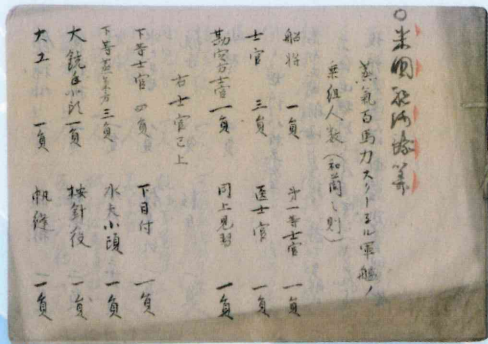 ○米国航海誌略
蒸氣百馬力スクードル軍艦ノ
乗組人数(和蘭之則)
船将 一員 第一等士官 一員
士官 三員 医士官 一員
勘定士官 一員 同上見習 一員
右士官已上
下等士官 四員 下目付 一員
下等蒸氣方 三員 水夫小頭 一員
大銃手小頭 一員 按針役 一員
大工 一員 帆縫 一員